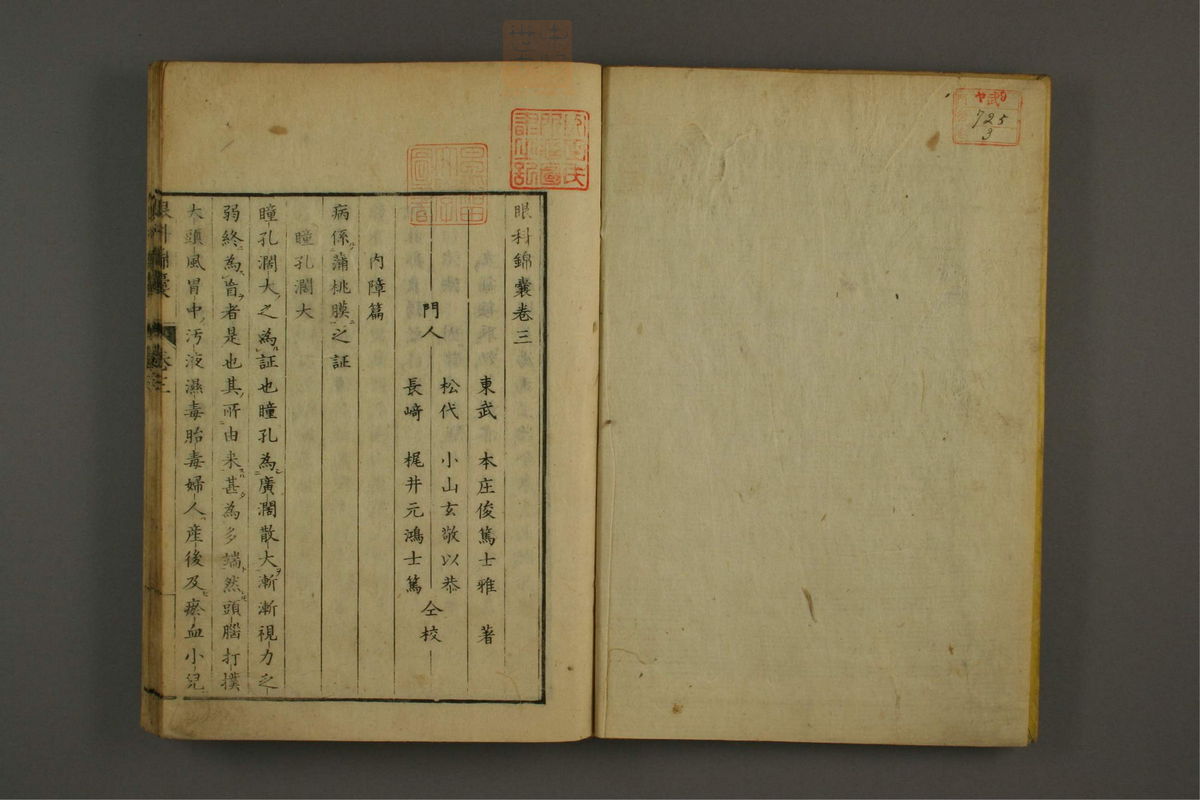 725
3
眼科錦囊卷三
東武 本庄俊篤士雅 著
門人 松代 小山玄敬以恭 仝校
長崎 梶井元鴻士篤
內障篇
病係蒲桃膜之証
瞳孔濶大
瞳孔濶大之為証也瞳孔為廣濶散大漸漸視力乏
弱終為盲者是也其所由来甚為多端然頭腦打撲
大頭風冒中汚液濕毒胎毒婦人産後及瘀血小兒
眼科錦囊 卷三